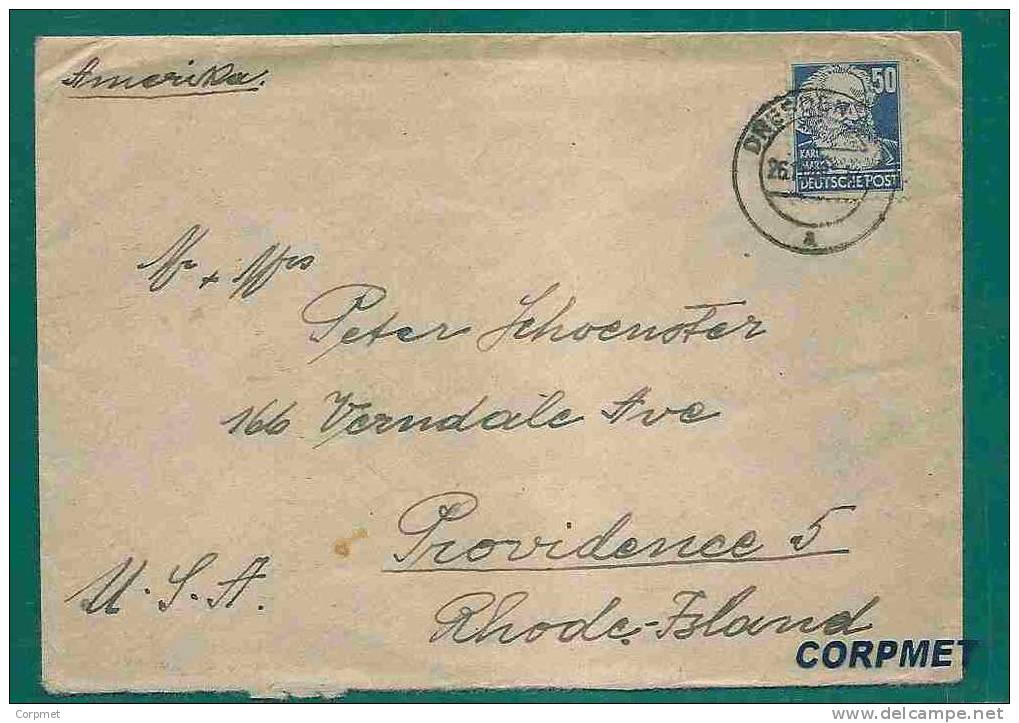 Amerika.
50
DRESDEN
KARL
MARX
DEUTSCHE POST
a
Mr + Mrs
Peter Schoenster
166 Verndale Ave
Providence 5
U.S.A.
Rhode-Island
CORPMET
Corpmet
delcampe.net